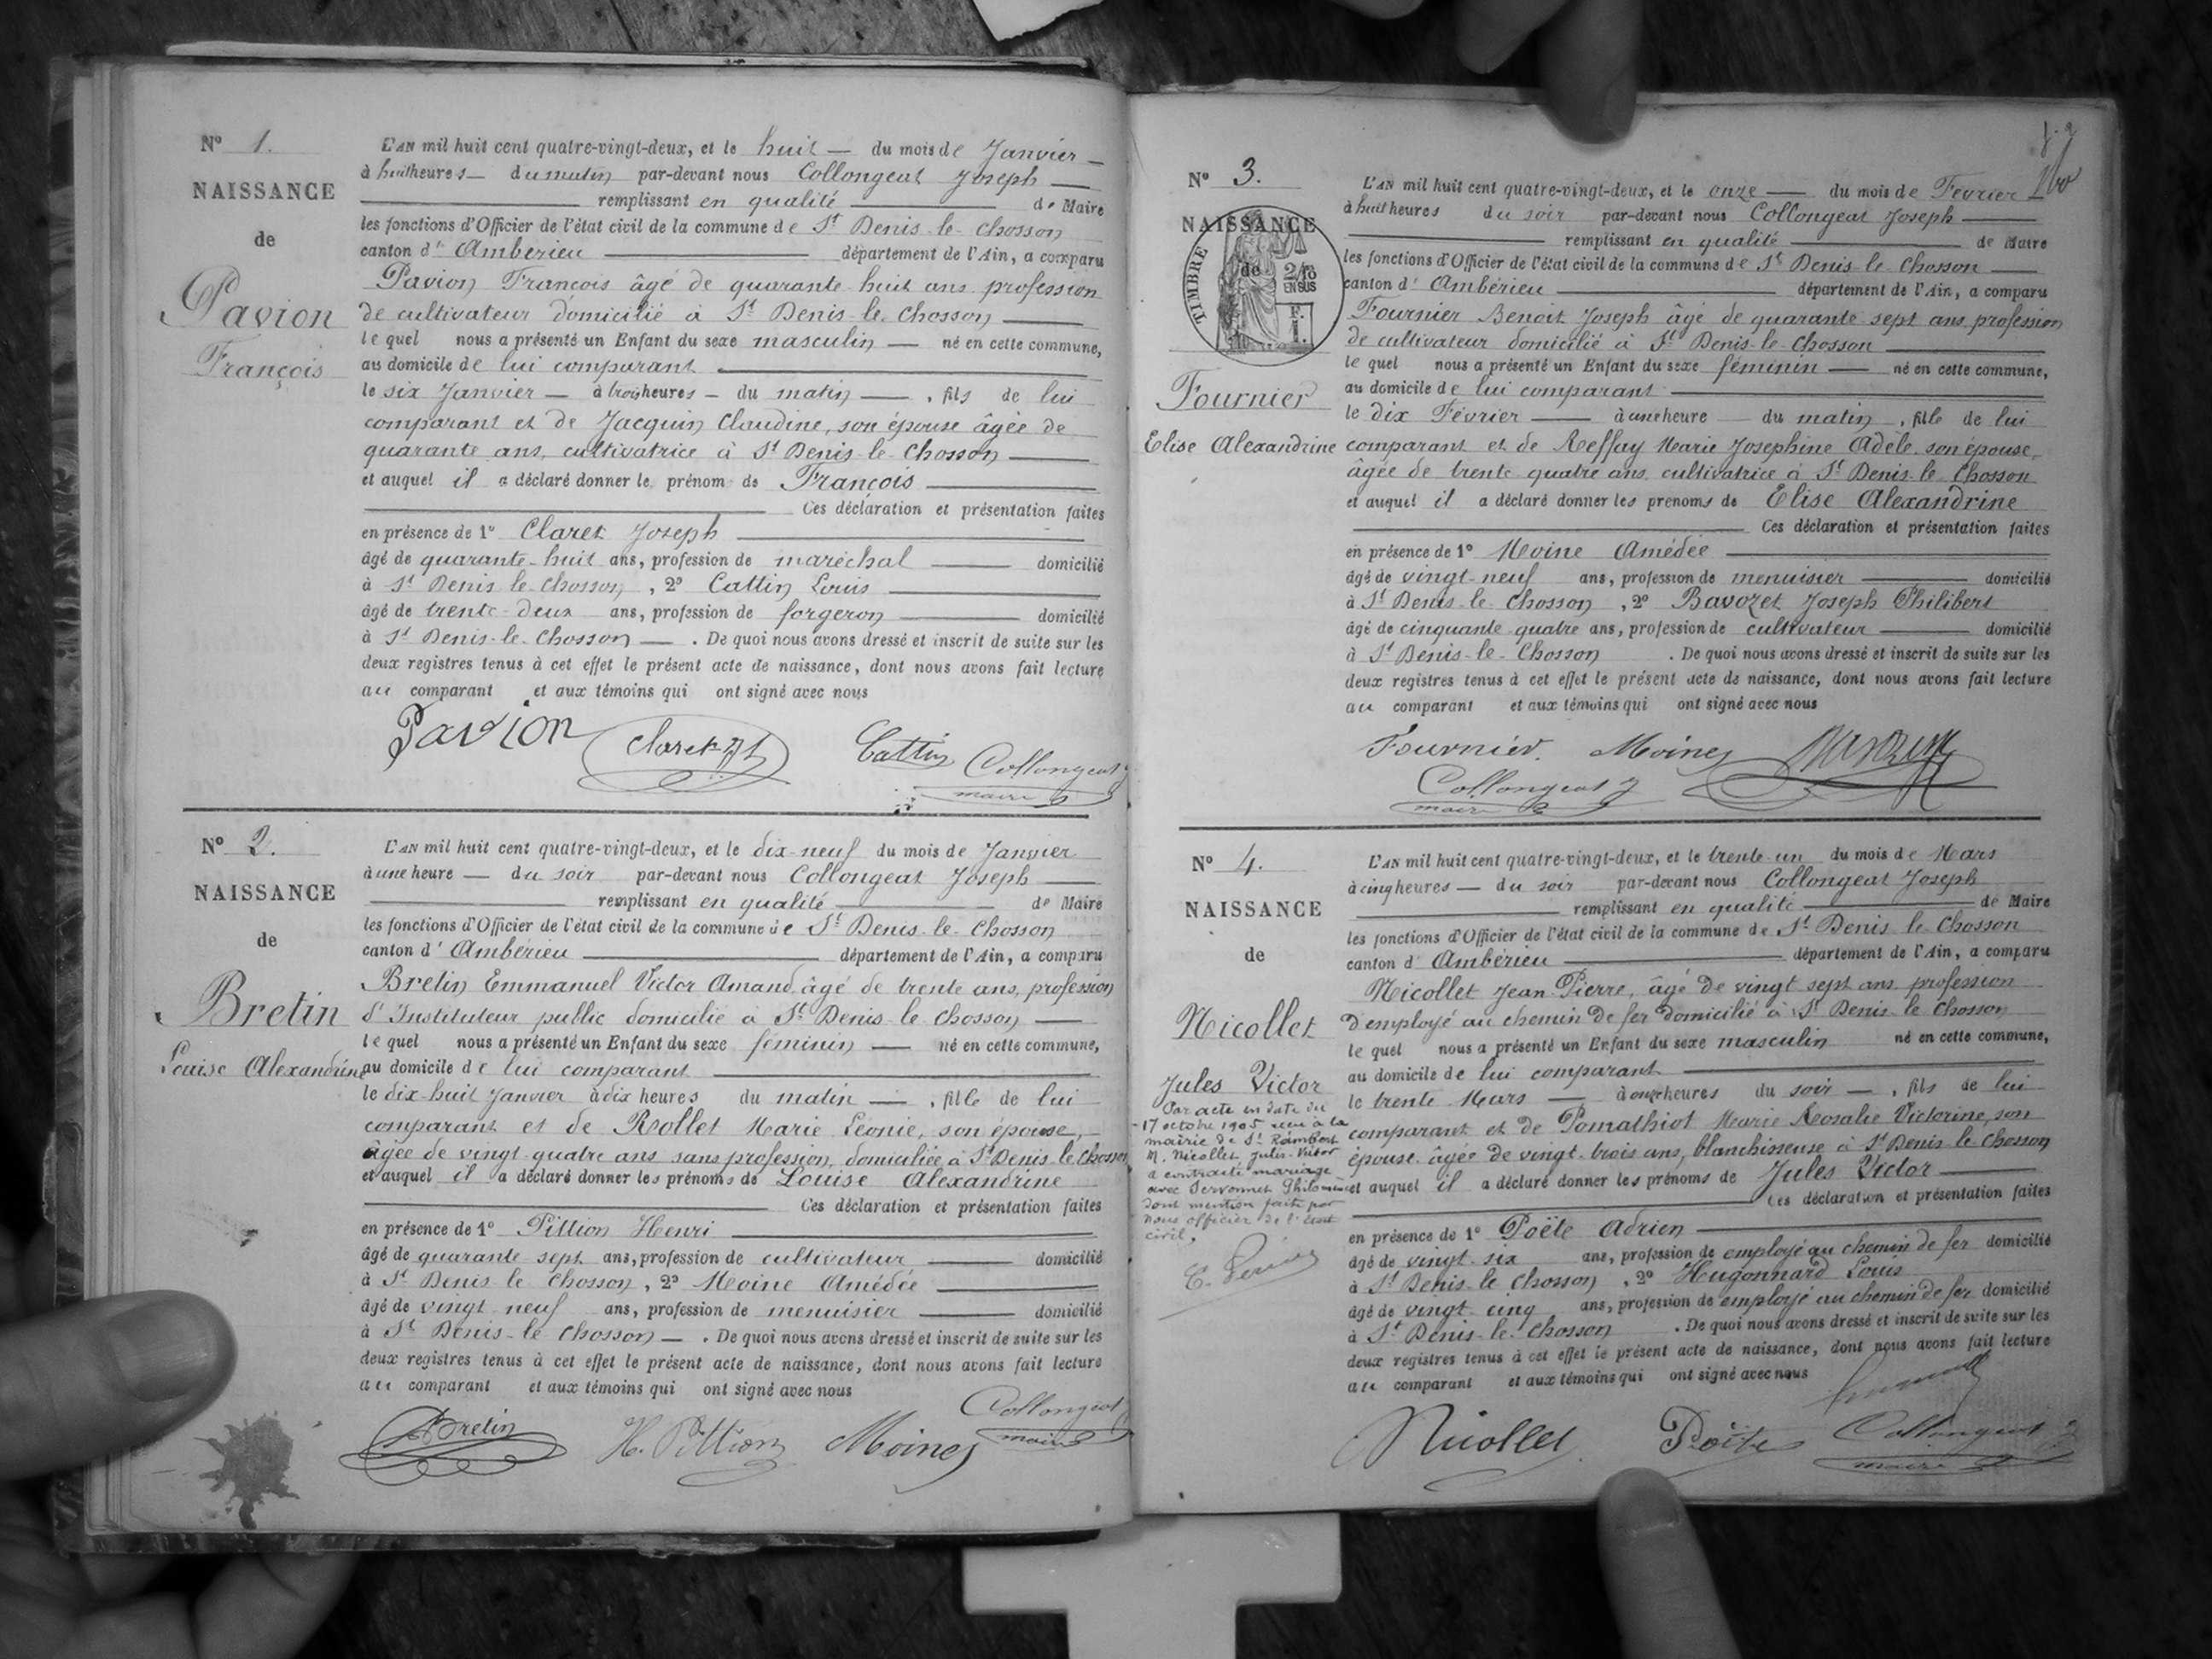 N° 1.
NAISSANCE
de
Pavion
François
L'AN mil huit cent quatre-vingt-deux, et le huit — du mois de Janvier —
à huit heures — du matin par-devant nous Collongeat Joseph —
remplissant en qualité — de Maire
les fonctions d'Officier de l'état civil de la commune de St Denis-le-Chosson
canton d' Ambérieu — département de l'Ain, a comparu
Pavion François âgé de quarante-huit ans profession
de cultivateur domicilié à St Denis-le-Chosson —
le quel nous a présenté un Enfant du sexe masculin — né en cette commune,
au domicile de lui comparant —
le six Janvier — à trois heures — du matin — , fils de lui
comparant et de Jacquin Claudine, son épouse âgée de
quarante ans, cultivatrice à St Denis-le-Chosson —
et auquel il a déclaré donner le prénom de François —
— Ces déclaration et présentation faites
en présence de 1° Claret Joseph —
âgé de quarante-huit ans, profession de maréchal — domicilié
à St Denis le Chosson, 2° Cattin Louis —
âgé de trente-deux ans, profession de forgeron — domicilié
à St Denis-le-Chosson — . De quoi nous avons dressé et inscrit de suite sur les
deux registres tenus à cet effet le présent acte de naissance, dont nous avons fait lecture
au comparant et aux témoins qui ont signé avec nous
Pavion Claret Cattin Collongeat J
maire
N° 2.
NAISSANCE
de
Bretin
Louise Alexandrine
L'AN mil huit cent quatre-vingt-deux, et le dix-neuf du mois de Janvier
à une heure — du soir par-devant nous Collongeat Joseph —
remplissant en qualité — de Maire
les fonctions d'Officier de l'état civil de la commune de St Denis-le-Chosson
canton d' Ambérieu — département de l'Ain, a comparu
Bretin Emmanuel Victor Amand, âgé de trente ans, profession
d'Instituteur public domicilié à St Denis-le-Chosson —
le quel nous a présenté un Enfant du sexe féminin — né en cette commune,
au domicile de lui comparant —
le dix-huit Janvier à dix heures du matin — , fille de lui
comparant et de Rollet Marie Léonie, son épouse,
âgée de vingt-quatre ans sans profession, domiciliée à St Denis-le-Chosson
et auquel il a déclaré donner les prénoms de Louise Alexandrine
— Ces déclaration et présentation faites
en présence de 1° Pittion Henri —
âgé de quarante-sept ans, profession de cultivateur — domicilié
à St Denis le Chosson, 2° Moine Amédée —
âgé de vingt-neuf ans, profession de menuisier — domicilié
à St Denis-le-Chosson — . De quoi nous avons dressé et inscrit de suite sur les
deux registres tenus à cet effet le présent acte de naissance, dont nous avons fait lecture
au comparant et aux témoins qui ont signé avec nous
Bretin H. Pittion Moine Collongeat
maire
N° 3.
NAISSANCE
de
TIMBRE
2/10
EN SUS
F.
1.
Fournier
Elise Alexandrine
L'AN mil huit cent quatre-vingt-deux, et le onze — du mois de Février
à huit heures du soir par-devant nous Collongeat Joseph —
remplissant en qualité — de Maire
les fonctions d'Officier de l'état civil de la commune de St Denis-le-Chosson —
canton d' Ambérieu — département de l'Ain, a comparu
Fournier Benoit Joseph âgé de quarante-sept ans profession
de cultivateur domicilié à St Denis-le-Chosson —
le quel nous a présenté un Enfant du sexe féminin — né en cette commune,
au domicile de lui comparant —
le dix Février — à une heure — du matin , fille de lui
comparant et de Reffay Marie Josephine Adèle, son épouse,
âgée de trente-quatre ans, cultivatrice à St Denis-le-Chosson
et auquel il a déclaré donner les prénoms de Elise Alexandrine
— Ces déclaration et présentation faites
en présence de 1° Moine Amédée —
âgé de vingt-neuf ans, profession de menuisier — domicilié
à St Denis-le-Chosson , 2° Bavozet Joseph Philibert
âgé de cinquante-quatre ans, profession de cultivateur — domicilié
à St Denis-le-Chosson . De quoi nous avons dressé et inscrit de suite sur les
deux registres tenus à cet effet le présent acte de naissance, dont nous avons fait lecture
au comparant et aux témoins qui ont signé avec nous
Fournier Moine
Collongeat J
maire
N° 4.
NAISSANCE
de
Nicollet
Jules Victor
Par acte en date du
17 octobre 1905 reçu à la
mairie de St Rambert
M. Nicollet Jules-Victor
a contracté mariage
avec Servonnet Philomène
dont mention faite par
nous officier de l'état
civil.
L'AN mil huit cent quatre-vingt-deux, et le trente-un du mois de Mars
à cinq heures — du soir par-devant nous Collongeat Joseph
remplissant en qualité — de Maire
les fonctions d'Officier de l'état civil de la commune de St Denis-le-Chosson
canton d' Ambérieu — département de l'Ain, a comparu
Nicollet Jean-Pierre, âgé de vingt-sept ans profession
d'employé au chemin de fer domicilié à St Denis-le-Chosson
le quel nous a présenté un Enfant du sexe masculin né en cette commune,
au domicile de lui comparant —
le trente Mars — à onze heures du soir — , fils de lui
comparant et de Pomathiot Marie Rosalie Victorine, son
épouse âgée de vingt-trois ans, blanchisseuse à St Denis-le-Chosson
et auquel il a déclaré donner les prénoms de Jules Victor —
— Ces déclaration et présentation faites
en présence de 1° Poëte Adrien —
âgé de vingt-six ans, profession de employé au chemin de fer domicilié
à St Denis-le-Chosson , 2° Hugonnard Louis
âgé de vingt-cinq ans, profession de employé au chemin de fer domicilié
à St Denis-le-Chosson . De quoi nous avons dressé et inscrit de suite sur les
deux registres tenus à cet effet le présent acte de naissance, dont nous avons fait lecture
au comparant et aux témoins qui ont signé avec nous
Nicollet Poëte Collongeat J
maire